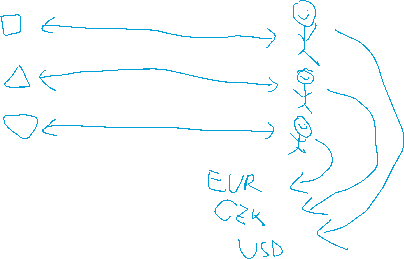 EUR
CZK
USD